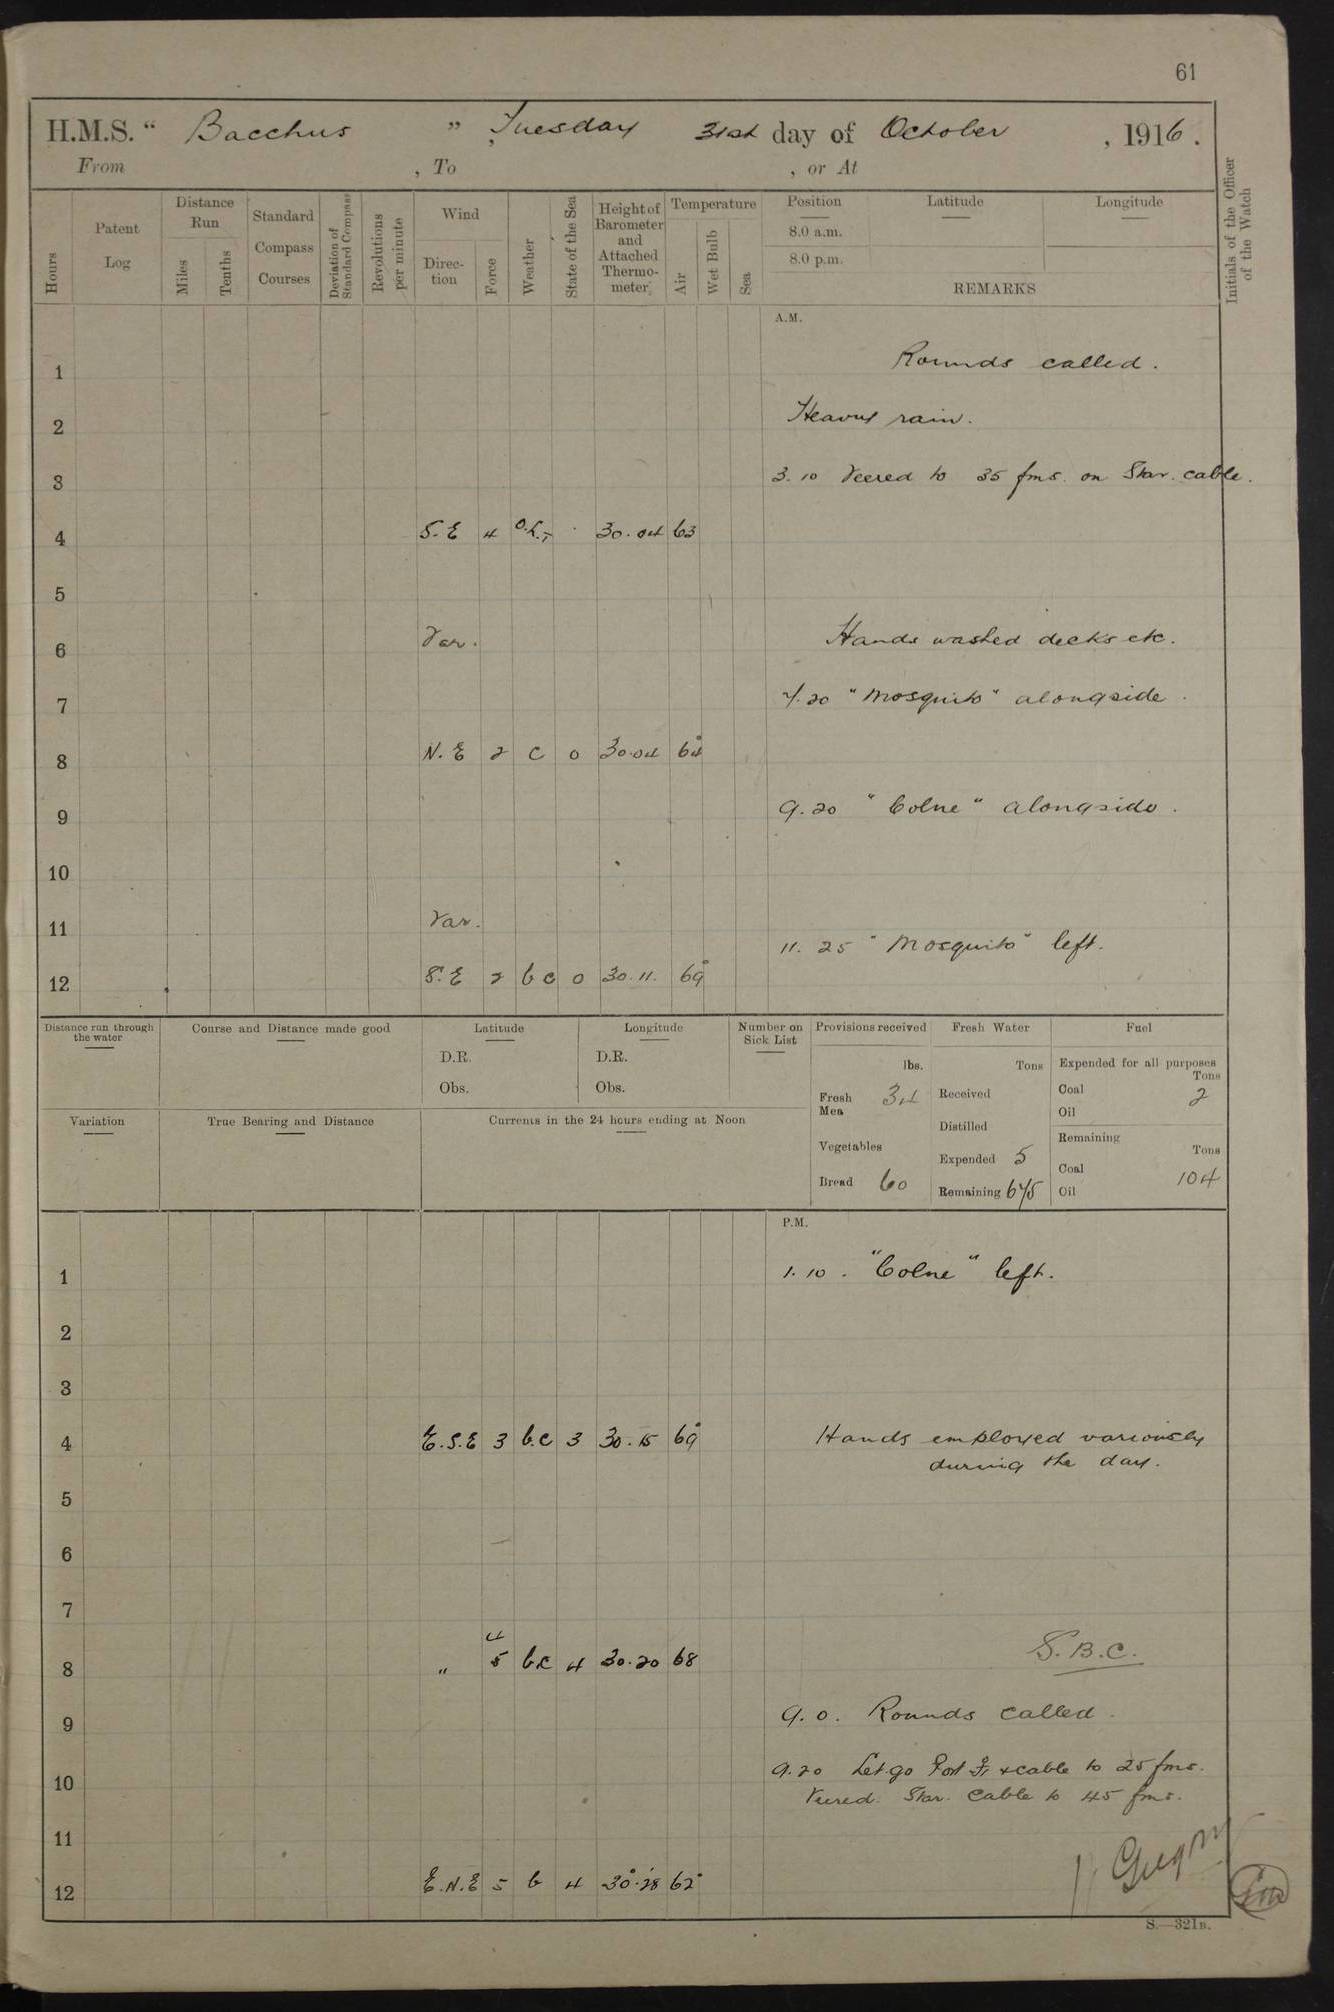 61
H.M.S. " Bacchus ", Tuesday 31st day of October, 1916.
From , To , or At
Hours
Patent Log
Distance Run
Miles
Tenths
Standard Compass Courses
Deviation of Standard Compass
Revolutions per minute
Wind
Direction
Force
Weather
State of the Sea
Height of Barometer and Attached Thermometer
Temperature
Air
Wet Bulb
Sea
Position
8.0 a.m.
8.0 p.m.
Latitude
Longitude
REMARKS
Initials of the Officer of the Watch
A.M.
1 Rounds called.
2 Heavy rain.
3 3.10 Veered to 35 fms. on Star. cable.
4 S.E 4 30.04 63
5
6 Var. Hands washed decks etc.
7 7.20 "Mosquito" alongside.
8 N.E 2 c 0 30.04 64°
9 9.20 "Colne" alongside.
10
11 Var.
11.25 "Mosquito" left.
12 S.E 2 b c 0 30.11. 69°
Distance run through the water
Course and Distance made good
Latitude
D.R.
Obs.
Longitude
D.R.
Obs.
Number on Sick List
Provisions received
lbs.
Fresh Mea 34
Vegetables
Bread 60
Fresh Water
Tons
Received
Distilled
Expended 5
Remaining 675
Fuel
Expended for all purposes
Tons
Coal 2
Oil
Remaining
Tons
Coal 104
Oil
Variation
True Bearing and Distance
Currents in the 24 hours ending at Noon
P.M.
1 1.10. "Colne" left.
2
3
4 E.S.E 3 b.c 3 30.15 69° Hands employed variously
during the day.
5
6
7
4
8 " 5 b.c 4 30.20 68 S.B.C.
9 9.0. Rounds called.
9.20 Let go Port & cable to 25 fms.
10
Veered Star. Cable to 45 fms.
11
12 E.N.E 5 b 4 30.28 62°
S.—321B.